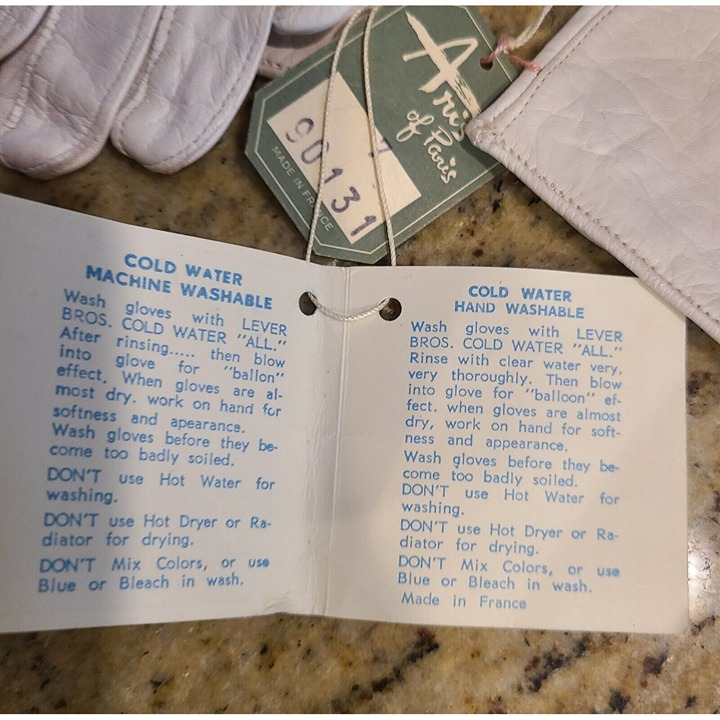 Aris
of Paris
7
90131
MADE IN FRANCE
COLD WATER
MACHINE WASHABLE
Wash gloves with LEVER
BROS. COLD WATER "ALL."
After rinsing..... then blow
into glove for "ballon"
effect. When gloves are al-
most dry. work on hand for
softness and apearance.
Wash gloves before they be-
come too badly soiled.
DON'T use Hot Water for
washing.
DON'T use Hot Dryer or Ra-
diator for drying.
DON'T Mix Colors, or use
Blue or Bleach in wash.
COLD WATER
HAND WASHABLE
Wash gloves with LEVER
BROS. COLD WATER "ALL."
Rinse with clear water very,
very thoroughly. Then blow
into glove for "balloon" ef-
fect. when gloves are almost
dry, work on hand for soft-
ness and appearance.
Wash gloves before they be-
come too badly soiled.
DON'T use Hot Water for
washing.
DON'T use Hot Dryer or Ra-
diator for drying.
DON'T Mix Colors, or use
Blue or Bleach in wash.
Made in France